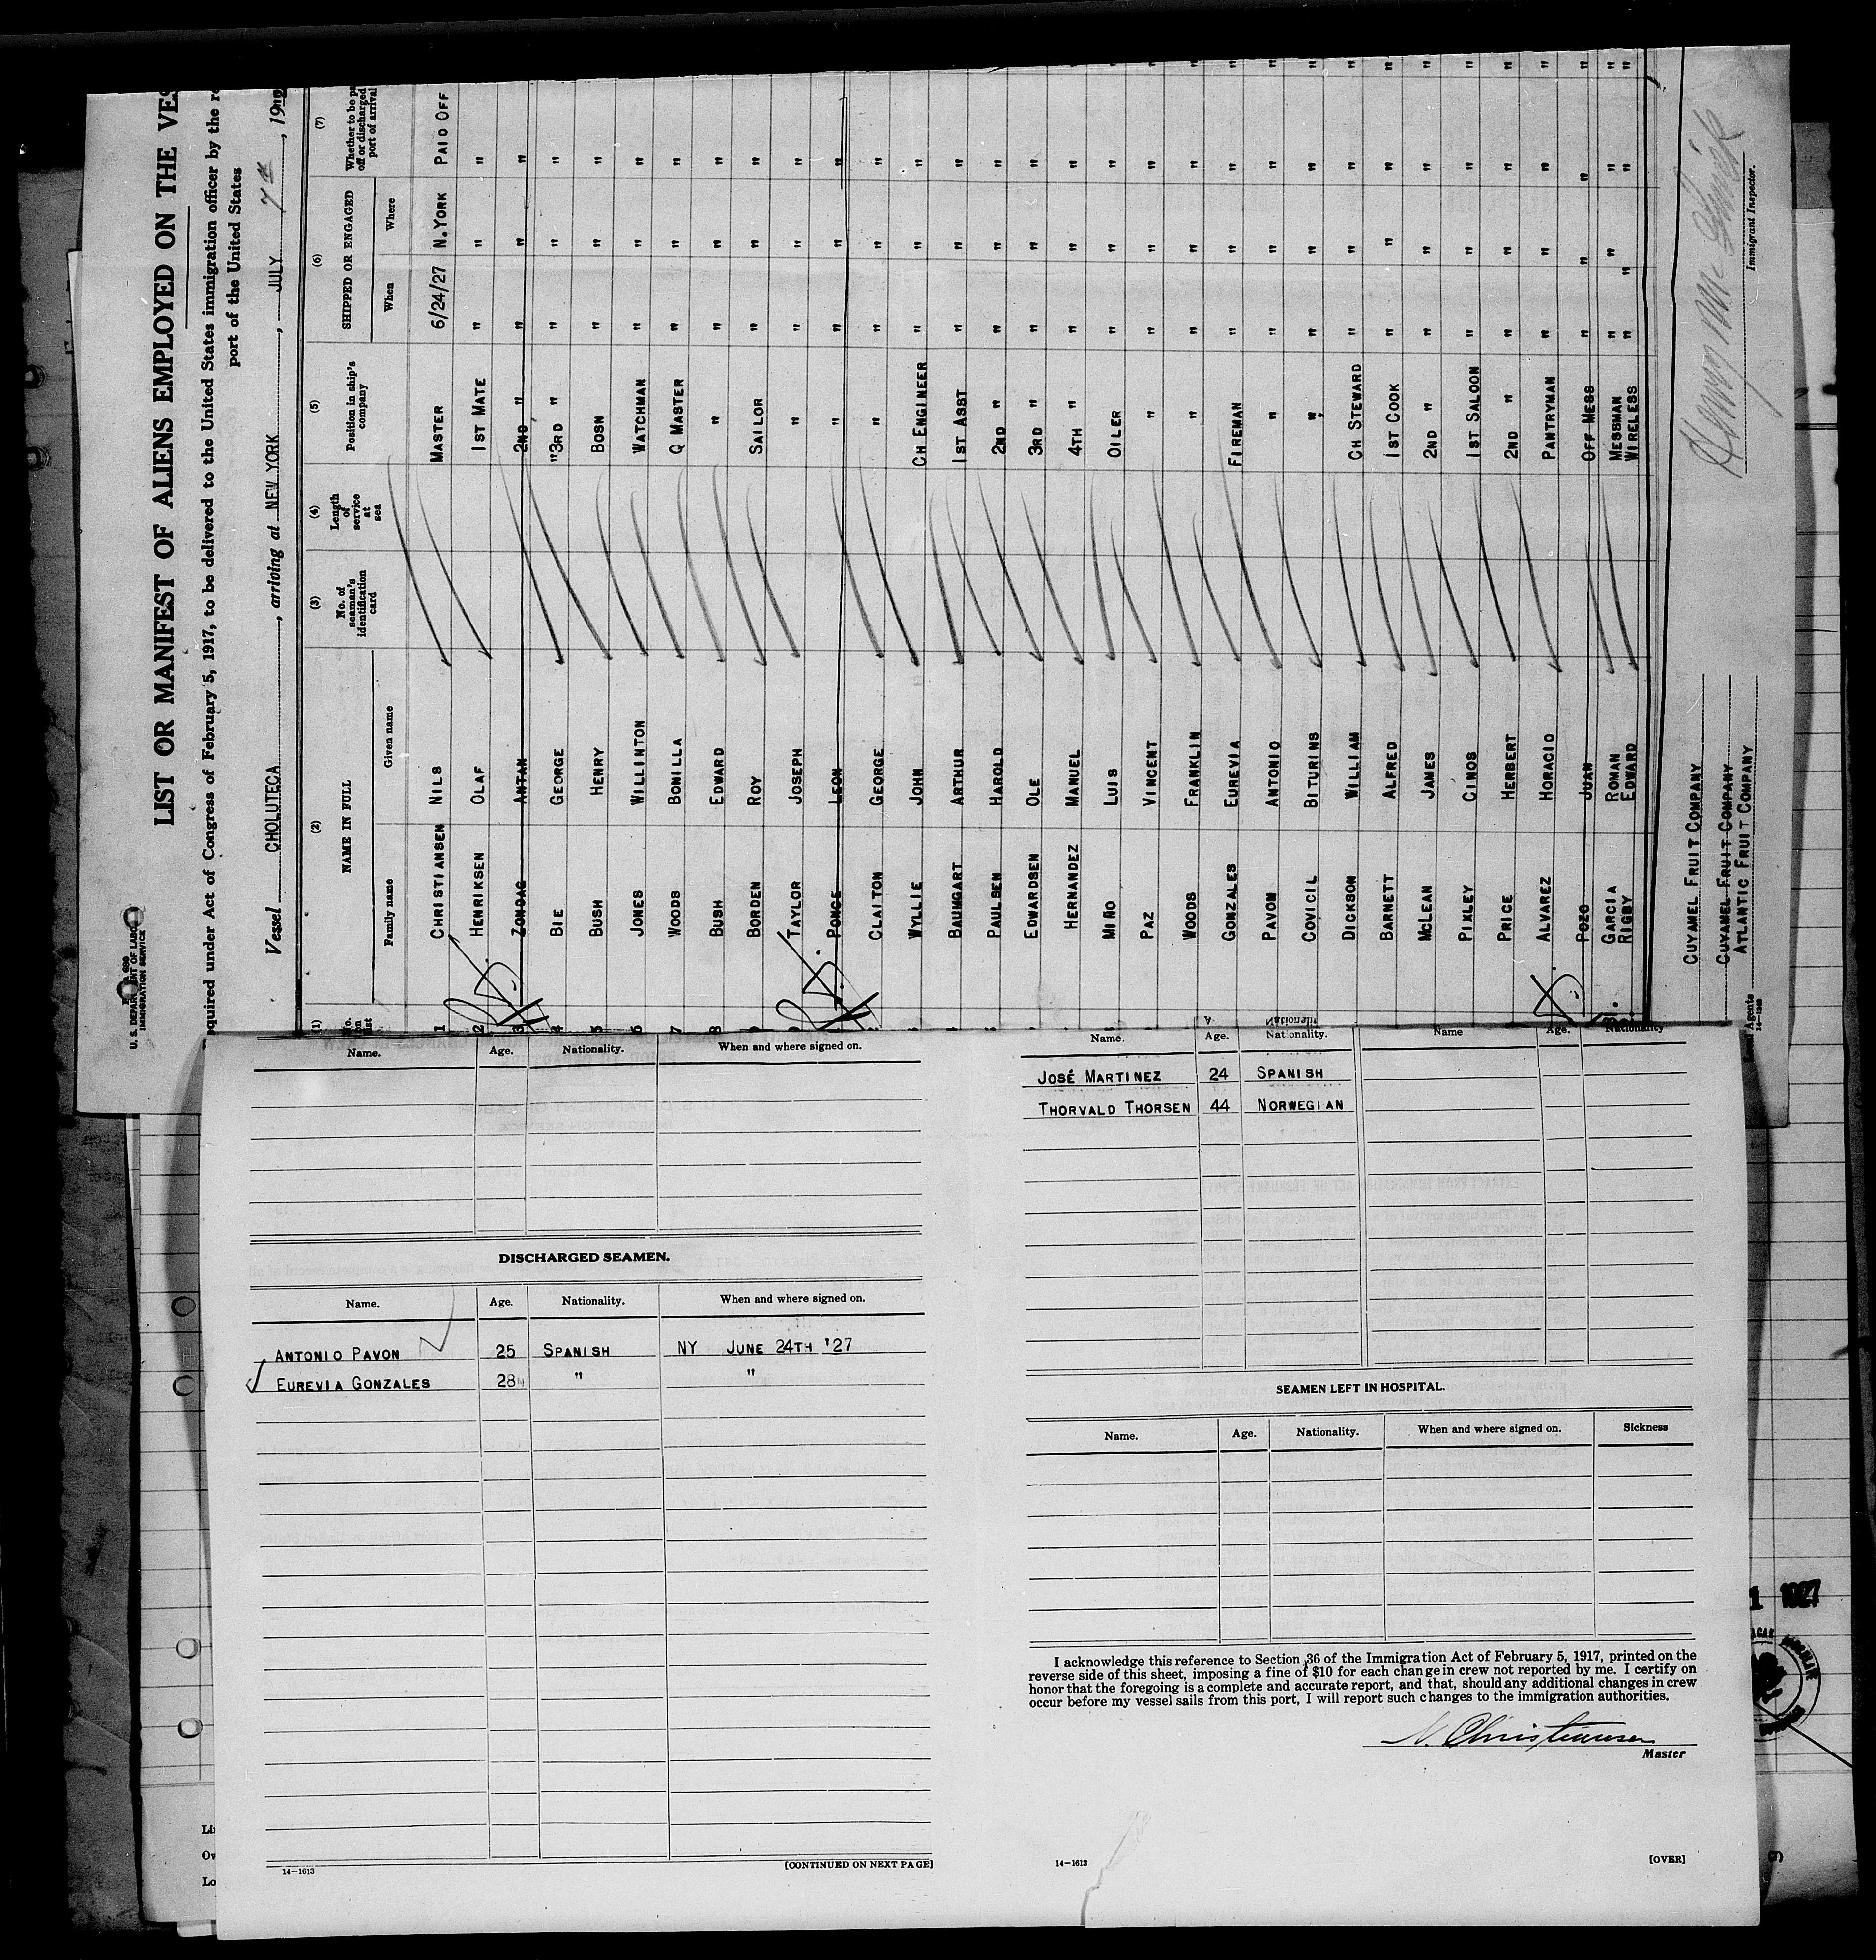 U. S. DEPARTMENT OF LABOR
IMMIGRATION SERVICE
LIST OR MANIFEST OF ALIENS EMPLOYED ON THE VES
equired under Act of Congress of February 5, 1917, to be delivered to the United States immigration officer by the re
port of the United States
Vessel CHOLUTECA, arriving at NEW YORK, JULY 7th, 192
(1) (2) (3) (4) (5) (6) (7)
NAME IN FULL No. of seaman's identification card Length of service at sea Position in ship's company SHIPPED OR ENGAGED Whether to be pa off or discharged port of arrival
Family name Given name When Where
1 CHRISTIANSEN NILS MASTER 6/24/27 N.YORK PAID OFF
2 HENRIKSEN OLAF 1ST MATE " " "
3 ZONDAG ANTAN 2ND " " " "
4 BIE GEORGE "3RD " " " "
5 BUSH HENRY BOSN " " "
6 JONES WILLINTON WATCHMAN " " "
7 WOODS BONILLA Q MASTER " " "
8 BUSH EDWARD " " " "
BORDEN ROY SAILOR " " "
TAYLOR JOSEPH " " " "
PONCE LEON " " " "
CLAITON GEORGE " " " "
WYLLIE JOHN CH ENGINEER " " "
BAUMGART ARTHUR 1ST ASST " " "
PAULSEN HAROLD 2ND " " " "
EDWARDSEN OLE 3RD " " " "
HERNANDEZ MANUEL 4TH " " " "
MIÑO LUIS OILER " " "
PAZ VINCENT " " " "
WOODS FRANKLIN " " " "
GONZALES EUREVIA FIREMAN " " "
PAVON ANTONIO " " " "
COVICIL BITURINS " " " "
DICKSON WILLIAM CH STEWARD " " "
BARNETT ALFRED 1ST COOK " " "
MCLEAN JAMES 2ND " " " "
PIXLEY CINOS 1ST SALOON " " "
PRICE HERBERT 2ND " " " "
ALVAREZ HORACIO PANTRYMAN " " "
POZO JUAN OFF MESS " " "
GARCIA ROMAN MESSMAN " " "
RIGBY EDWARD WIRELESS " " "
CUYAMEL FRUIT COMPANY
CUYAMEL FRUIT COMPANY
ATLANTIC FRUIT COMPANY
Agents
Immigrant Inspector.
Name. Age. Nationality. When and where signed on.
DISCHARGED SEAMEN.
Name. Age. Nationality. When and where signed on.
ANTONIO PAVON 25 SPANISH NY JUNE 24TH '27
EUREVIA GONZALES 28 " "
14—1613 [CONTINUED ON NEXT PAGE]
Name. Age. Nationality. Name Age. Nationality
JOSÉ MARTINEZ 24 SPANISH
THORVALD THORSEN 44 NORWEGIAN
SEAMEN LEFT IN HOSPITAL.
Name. Age. Nationality. When and where signed on. Sickness
I acknowledge this reference to Section 36 of the Immigration Act of February 5, 1917, printed on the
reverse side of this sheet, imposing a fine of $10 for each change in crew not reported by me. I certify on
honor that the foregoing is a complete and accurate report, and that, should any additional changes in crew
occur before my vessel sails from this port, I will report such changes to the immigration authorities.
N. Christiansen
Master
14—1613 [OVER]
1 1927
Li
Ow
Lo